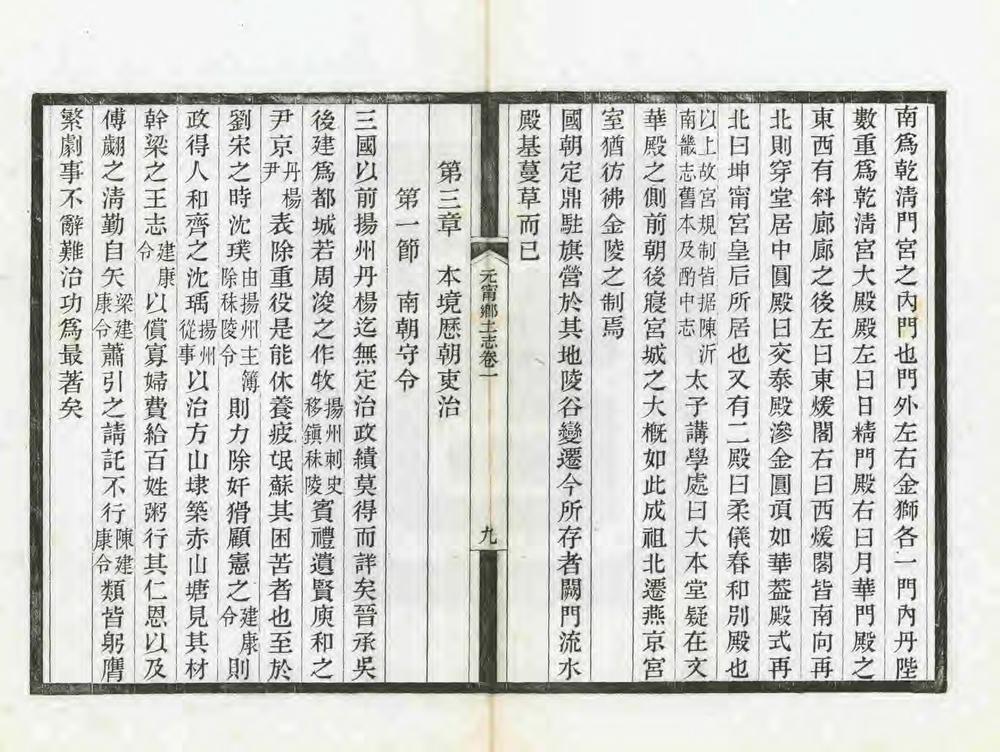 南爲乾淸門宮之內門也門外左右金獅各一門內丹陛
數重爲乾淸宮大殿殿左曰日精門殿右曰月華門殿之
東西有斜廊廊之後左曰東煖閣右曰西煖閣皆南向再
北則穿堂居中圓殿曰交泰殿滲金圓頂如華葢殿式再
北曰坤甯宮皇后所居也又有二殿曰柔儀春和別殿也
以上故宮規制皆据陳沂南畿志舊本及酌中志太子講學處曰大本堂疑在文
華殿之側前朝後寢宮城之大槪如此成祖北遷燕京宮
室猶彷彿金陵之制焉
國朝定鼎駐旗營於其地陵谷變遷今所存者闕門流水
殿基蔓草而已
元甯鄕土志卷一
九
第三章 本境歷朝吏治
第一節 南朝守令
三國以前揚州丹楊迄無定治政績莫得而詳矣晉承吳
後建爲都城若周浚之作牧揚州刺史移鎭秣陵賓禮遺賢庾和之
尹京丹楊尹表除重役是能休養疲氓蘇其困苦者也至於
劉宋之時沈璞由揚州主簿除秣陵令則力除奸猾顧憲之建康令則
政得人和齊之沈瑀揚州從事以治方山埭築赤山塘見其材
幹梁之王志建康令以償寡婦費給百姓粥行其仁恩以及
傅翽之淸勤自矢梁建康令蕭引之請託不行陳建康令類皆躬膺
繁劇事不辭難治功爲最著矣